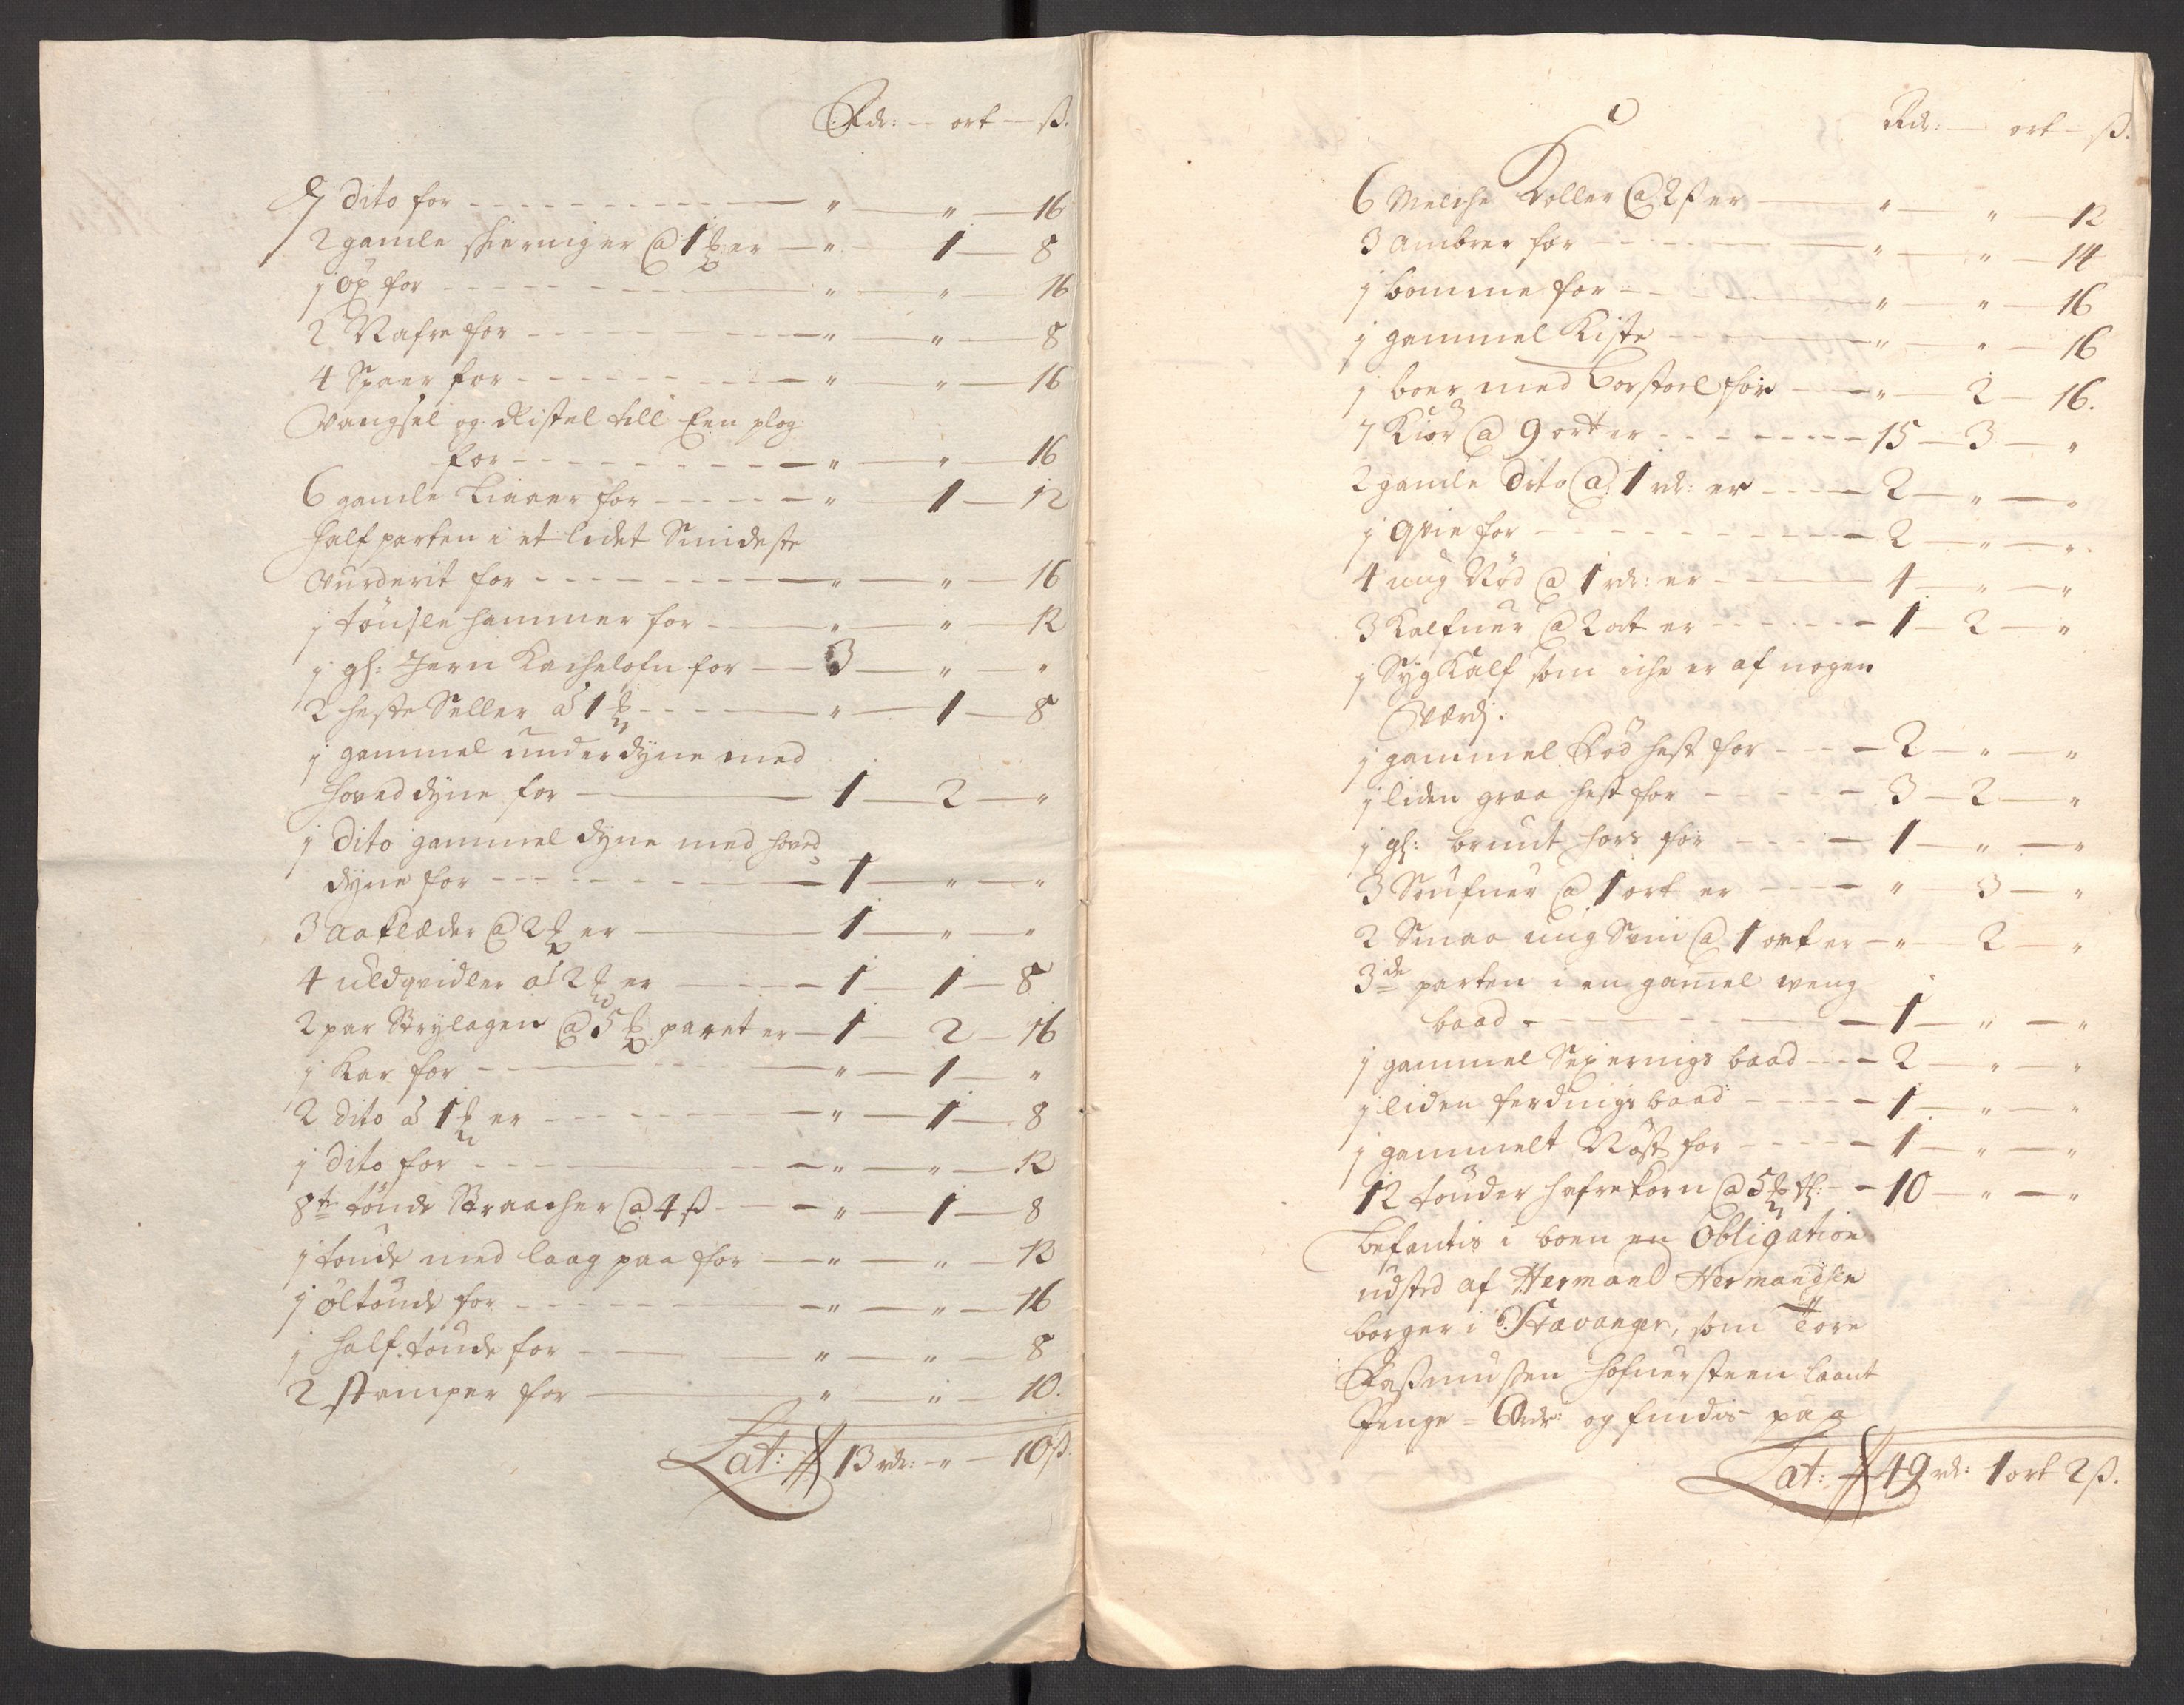 Rdr: — ort — ß.
7 dito for — " — " — 16
2 gamle skierninger @ 1 ℔ er — " — 1 — 8
j öx for — " — " — 16
2 Nafre for — " — " — 8
4 Spaer for — " — " — 16
Vangsel og Ristel till Een plog
for — " — " — 16
6 gamle Liaaer for — " — 1 — 12
Halfparten i et lidet Smideste
Vurderit for — " — " — 16
j hammer for — " — " — 12
j gl: Jern Kachelofn for — 3 — " — "
2 heste Seller á 1 ℔ — " — 1 — 8
j gammel underdyne med
hoveddyne for — 1 — 2 — "
j dito gammel dyne med hoved
dyne for — 1 — " — "
3 aaklæder @ 2 ℔ er — 1 — " — "
4 uldqvidler á 2 ℔ er — 1 — 1 — 8
2 par Strylagen @ 5 ℔ paret er — 1 — 2 — 16
j Kar for — " — 1 — "
2 dito á 1 ℔ er — " — 1 — 8
j dito for — " — " — 12
8te tönde Straacher @ 4 ß — " — 1 — 8
j tönde med laag paa for — " — " — 12
j öltönde for — " — " — 16
j half tönde for — " — " — 8
2 stamper for — " — " — 10.
Lat: 13 rdr: — " — 10 ß.
Rdr: — ort — ß.
6 Melche Koller @ 2 ß er — " — " — 12
3 ambrer for — " — " — 14
j bomme for — " — " — 16
j gammel Kiste — " — " — 16
j boer med for — " — 2 — 16.
7 Kiör @ 9 ort er — 15 — 3 — "
2 gamle dito @ 1 rdr: er — 2 — " — "
j qvie for — 2 — " — "
4 ung Nöd @ 1 rdr: er — 4 — " — "
3 Kalfuer @ 2 ort er — 1 — 2 — "
j Syg Kalf som iche er af nogen
Værdj.
j gammel Röd hest for — 2 — " — "
j liden graa hest for — 3 — 2 — "
j gl: brunt hors for — 1 — " — "
3 Soufuer @ 1 ort er — " — 3 — "
2 Smaa ung Svin @ 1 ort er — " — 2 — "
3de parten i en gamel weng
baad — 1 — " — "
j gammel Sexernigs baad — 2 — " — "
j liden ferdings baad — 1 — " — "
j gammelt Nöst for — 1 — " — "
12 tönder hafrekorn @ 5 ℔ tl: — 10 — " — "
Befantis i boen en Obligation
udsted af Hermand Hermandsen
borger i Stavanger, som Tore
Rasmussen Hofuersteen laant
Penge - 60 rdr: og findis paa
Lat: 49 rdr: 1 ort 2 ß.